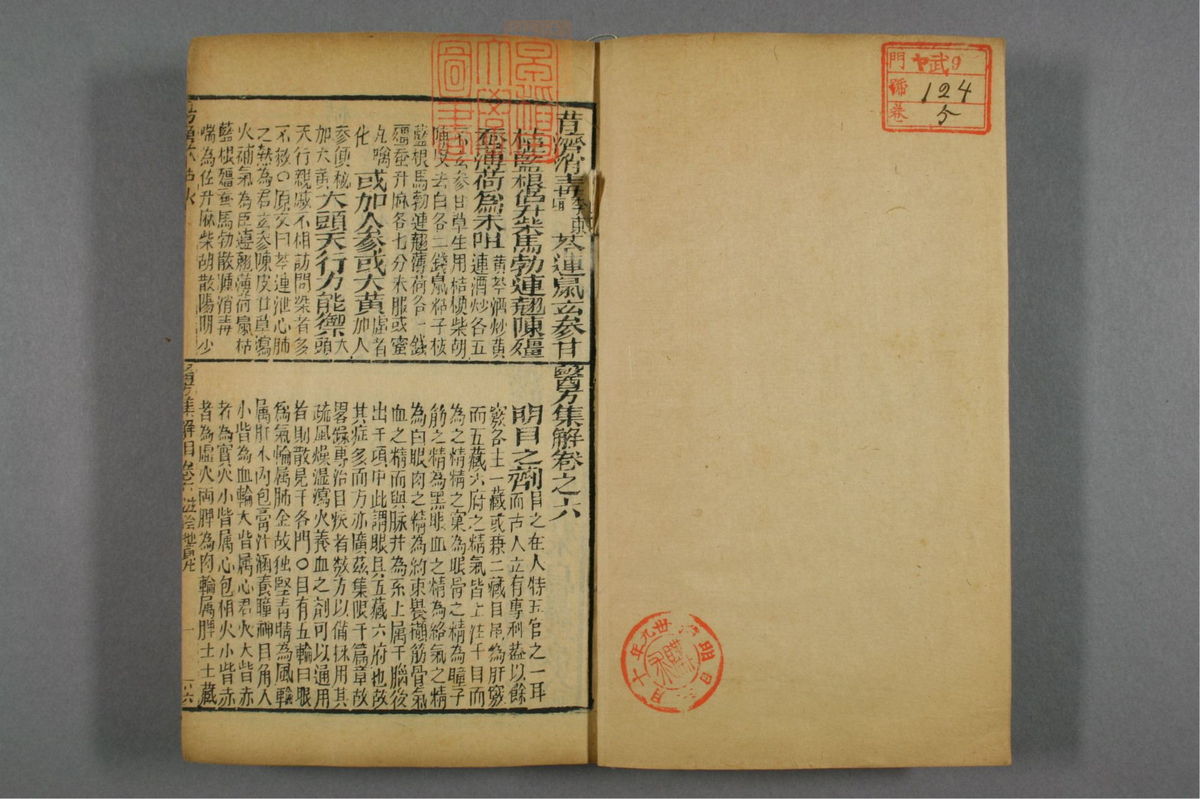 門 ヤ武9
號 124
卷 5
明治卅九年十月
普濟消毒飲 芩連鼠玄參甘
桔藍根侶升柴馬勃連翹陳殭
蠶薄荷為末咀 黃芩酒炒黃
連酒炒各五
錢玄參甘草生用桔梗柴胡
陳皮去白各二錢鼠粘子板
藍根馬勃連翹薄荷各一錢
殭蠶升麻各七分末服或蜜
丸噙
化 或加人參或大黃 虛者
加人
參便秘
加大黃 大頭天行力能禦 大
頭
天行親戚不相訪問染者多
不救○原文曰芩連泄心肺
之熱為君玄參陳皮甘草瀉
火補氣為臣連翹薄荷鼠粘
藍根殭蠶馬勃散腫消毒
喘為佐升麻柴胡散陽明少
醫方集解卷之六
明目之劑 目之在人特五官之一耳
而古人立有專科蓋以餘
竅各主一藏或兼二藏目雖為肝竅
而五藏六府之精氣皆上注于目而
為之精精之窠為眼骨之精為瞳子
筋之精為黑眼血之精為絡氣之精
為白眼肉之精為約束裹擷筋骨氣
血之精而與脉并為系上屬于腦後
出于項中此謂眼具五藏六府也故
其症多而方亦廣茲集限于篇章故
畧錄專治目疾者數方以備採用其
疏風燥濕瀉火養血之劑可以通用
者則散見于各門○目有五輪白眼
為氣輪属肺金故獨堅青睛為風輪
属肝木內包膏汁涵養瞳神目角大
小眥為血輪大眥属心君火大眥赤
者為實火小眥属心包相火小眥赤
者為虛火両脾為肉輪属脾土土藏